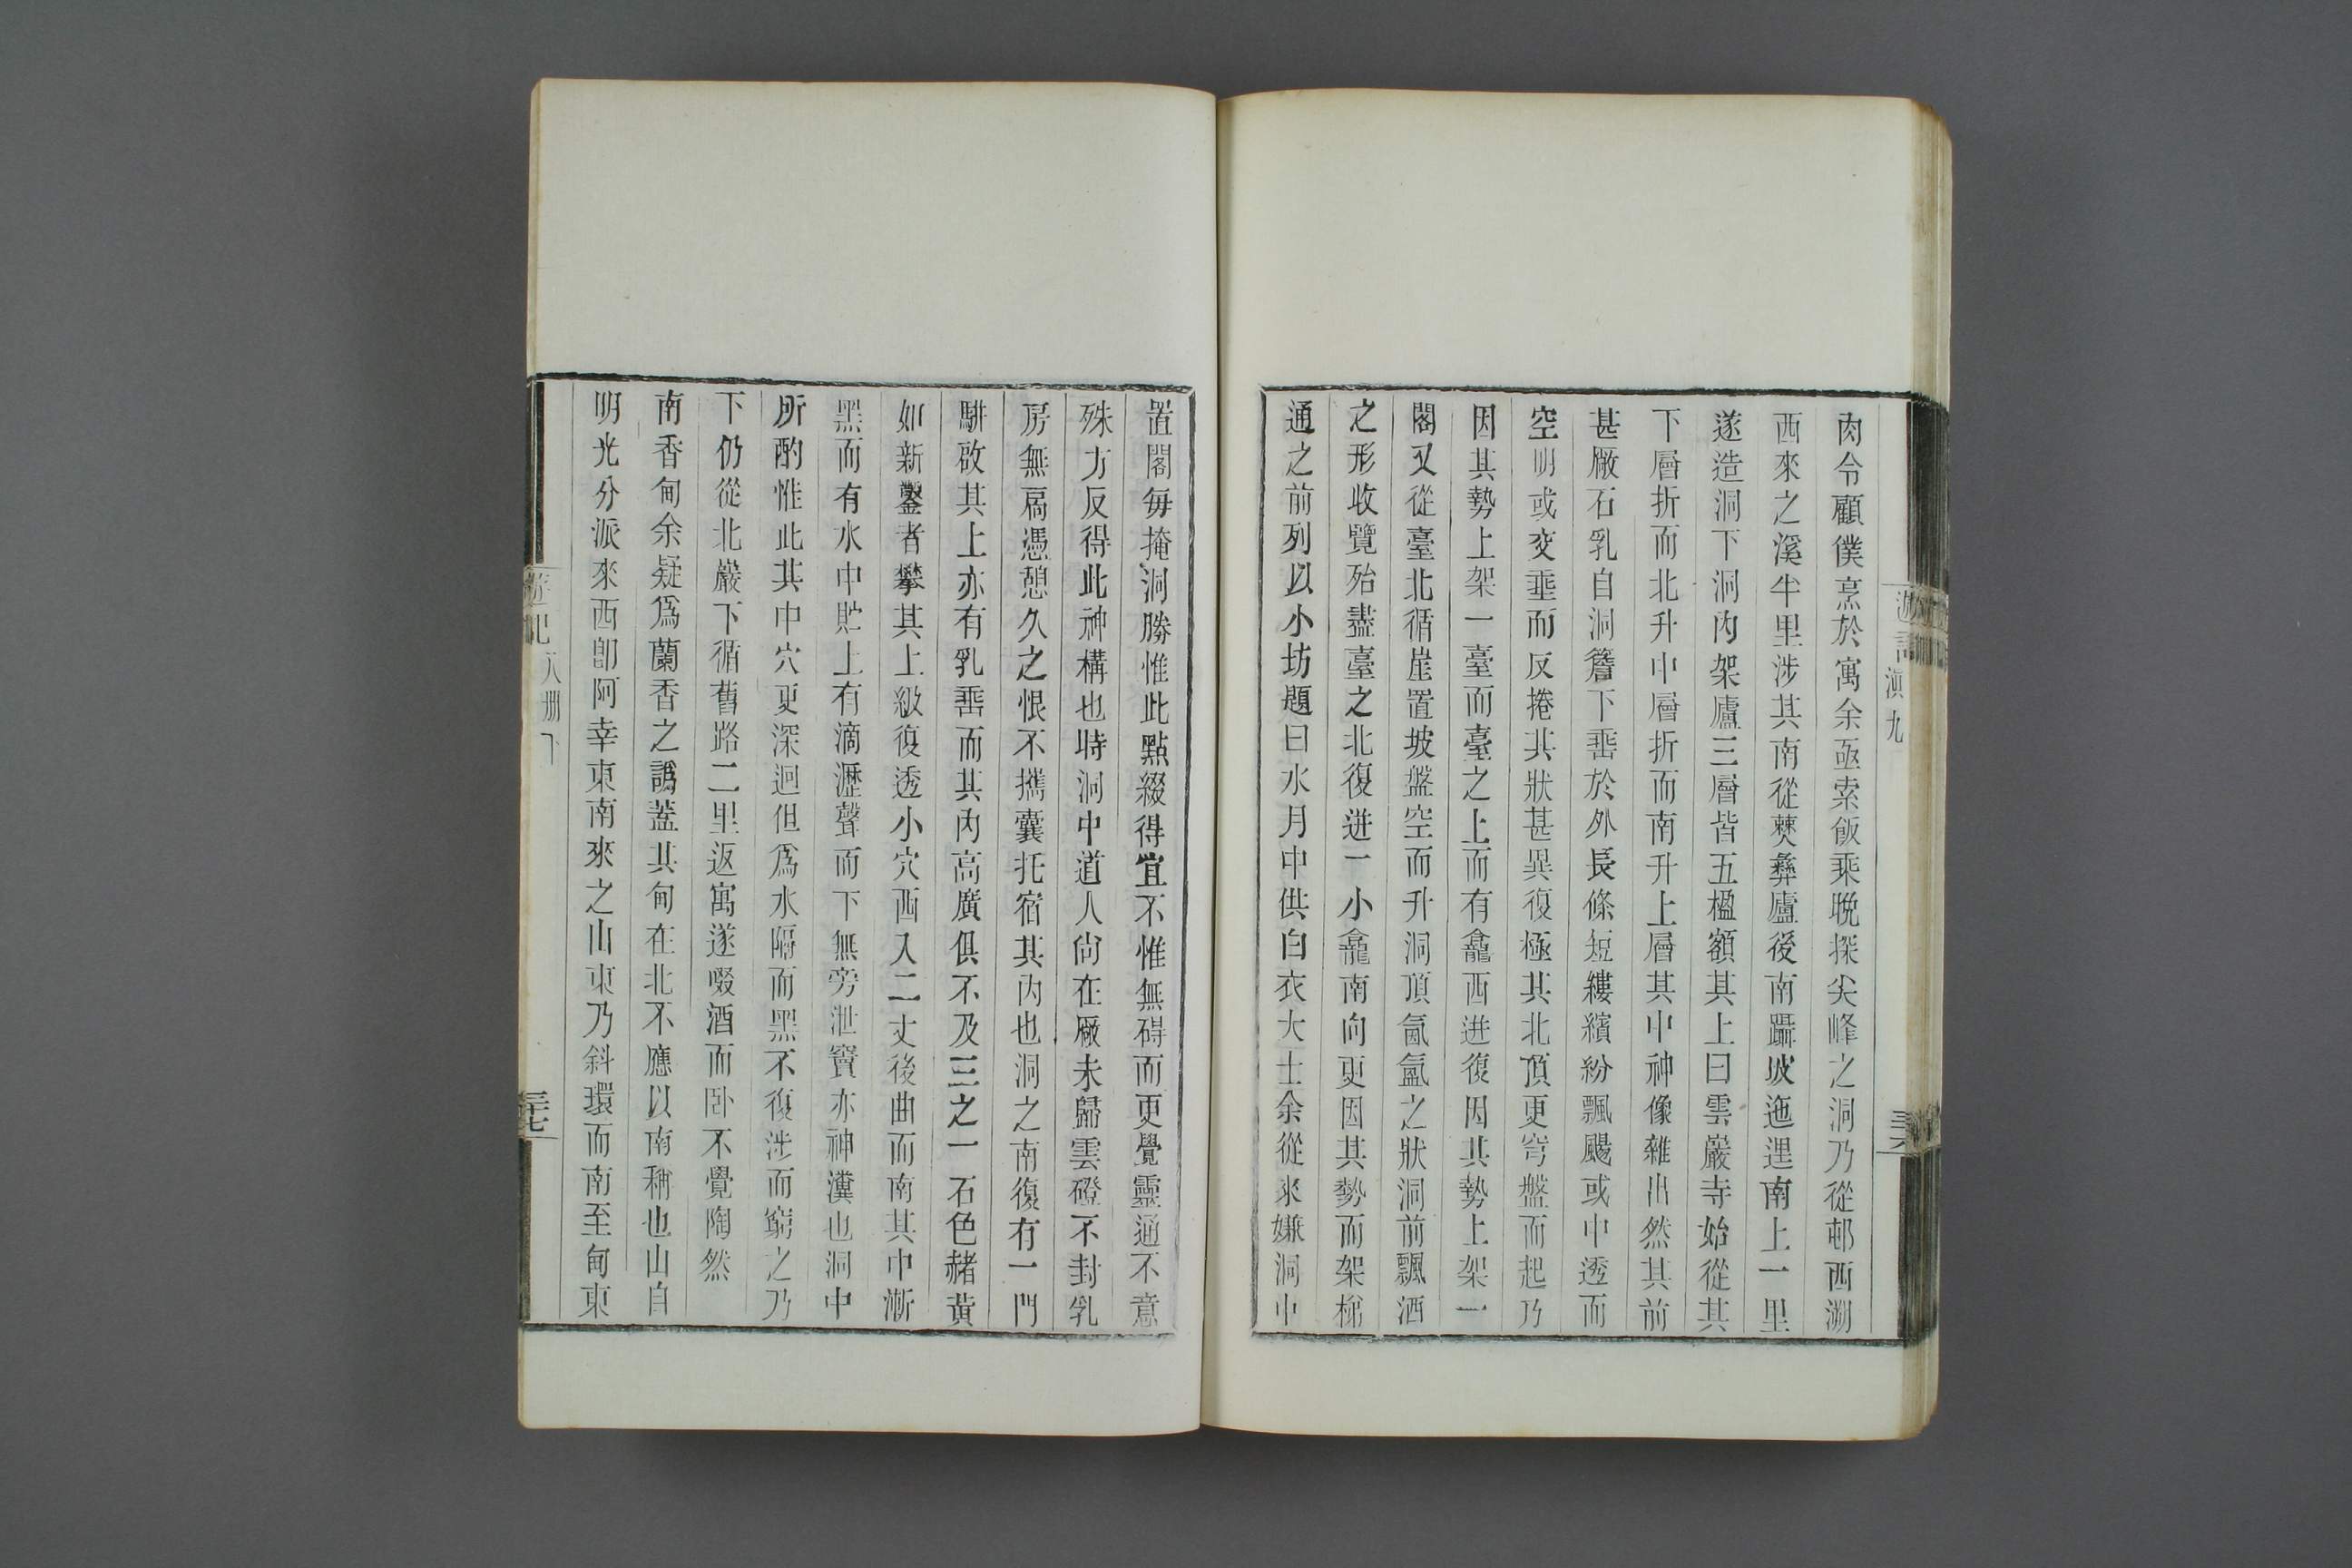 肉令顧僕烹於寓余亟索飯乘晚探尖峰之洞乃從邨西溯
西來之溪半里涉其南從僰彝廬後南躡坡迤逕南上一里
遂造洞下洞內架廬三層皆五楹額其上曰雲巖寺始從其
下層折而北升中層折而南升上層其中神像雜出然其前
甚厰石乳自洞簷下垂於外長條短縷繽紛飄颺或中透而
空明或交垂而反捲其狀甚異復極其北頂更穹盤而起乃
因其勢上架一臺而臺之上而有龕西迸復因其勢上架一
閣又從臺北循崖置坡盤空而升洞頂氤氳之狀洞前飄洒
之形收覽殆盡臺之北復迸一小龕南向更因其勢而架梯
通之前列以小坊題曰水月中供白衣大士余從來嫌洞中
遊記
滇九
三十六
置閣每掩洞勝惟此點綴得宜不惟無碍而更覺靈通不意
殊方反得此神構也時洞中道人尙在厰未歸雲磴不封乳
房無扃憑憩久之恨不攜囊托宿其內也洞之南復有一門
駢啟其上亦有乳垂而其內高廣俱不及三之一石色赭黃
如新鑿者攀其上級復透小穴西入二丈後曲而南其中漸
黑而有水中貯上有滴瀝聲而下無旁泄竇亦神瀵也洞中
所酌惟此其中穴更深迥但爲水隔而黑不復涉而窮之乃
下仍從北巖下循舊路二里返寓遂啜酒而卧不覺陶然
南香甸余疑爲蘭香之譌蓋其甸在北不應以南稱也山自
明光分派來西卽阿幸東南來之山東乃斜環而南至甸東
遊記
八冊下
三十七